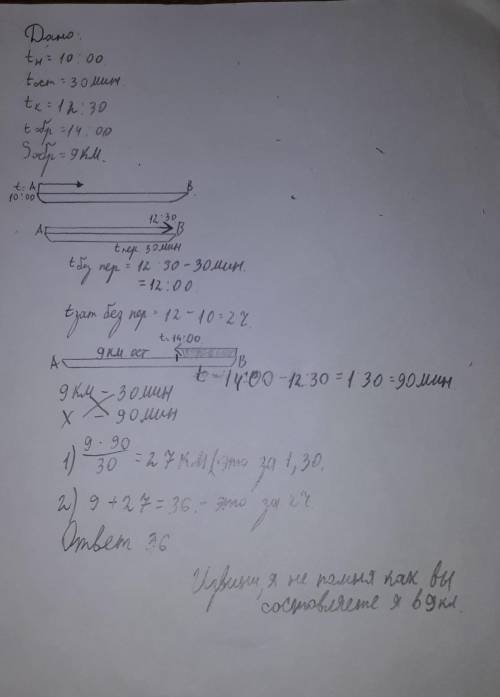 Дано:
tн = 10:00
tост = 30мин
tк = 12:30
tобр = 14:00
Sобр = 9км.
t: A B
10:00
12:30
A B
tпер 30мин
tбуз пер = 12 30 - 30мин.
= 12:00
tзат без пер = 12 - 10 = 2ч.
t=14:00
9км ост
A B
t = 14:00 - 12:30 = 1 30 = 90мин
9км - 30мин
x - 90мин
1) 9 · 90 / 30 = 27км/это за 1,30.
2) 9 + 27 = 36. - это за 2ч
Ответ 36
Извини, я не помня как вы
составляете я в 9кл.